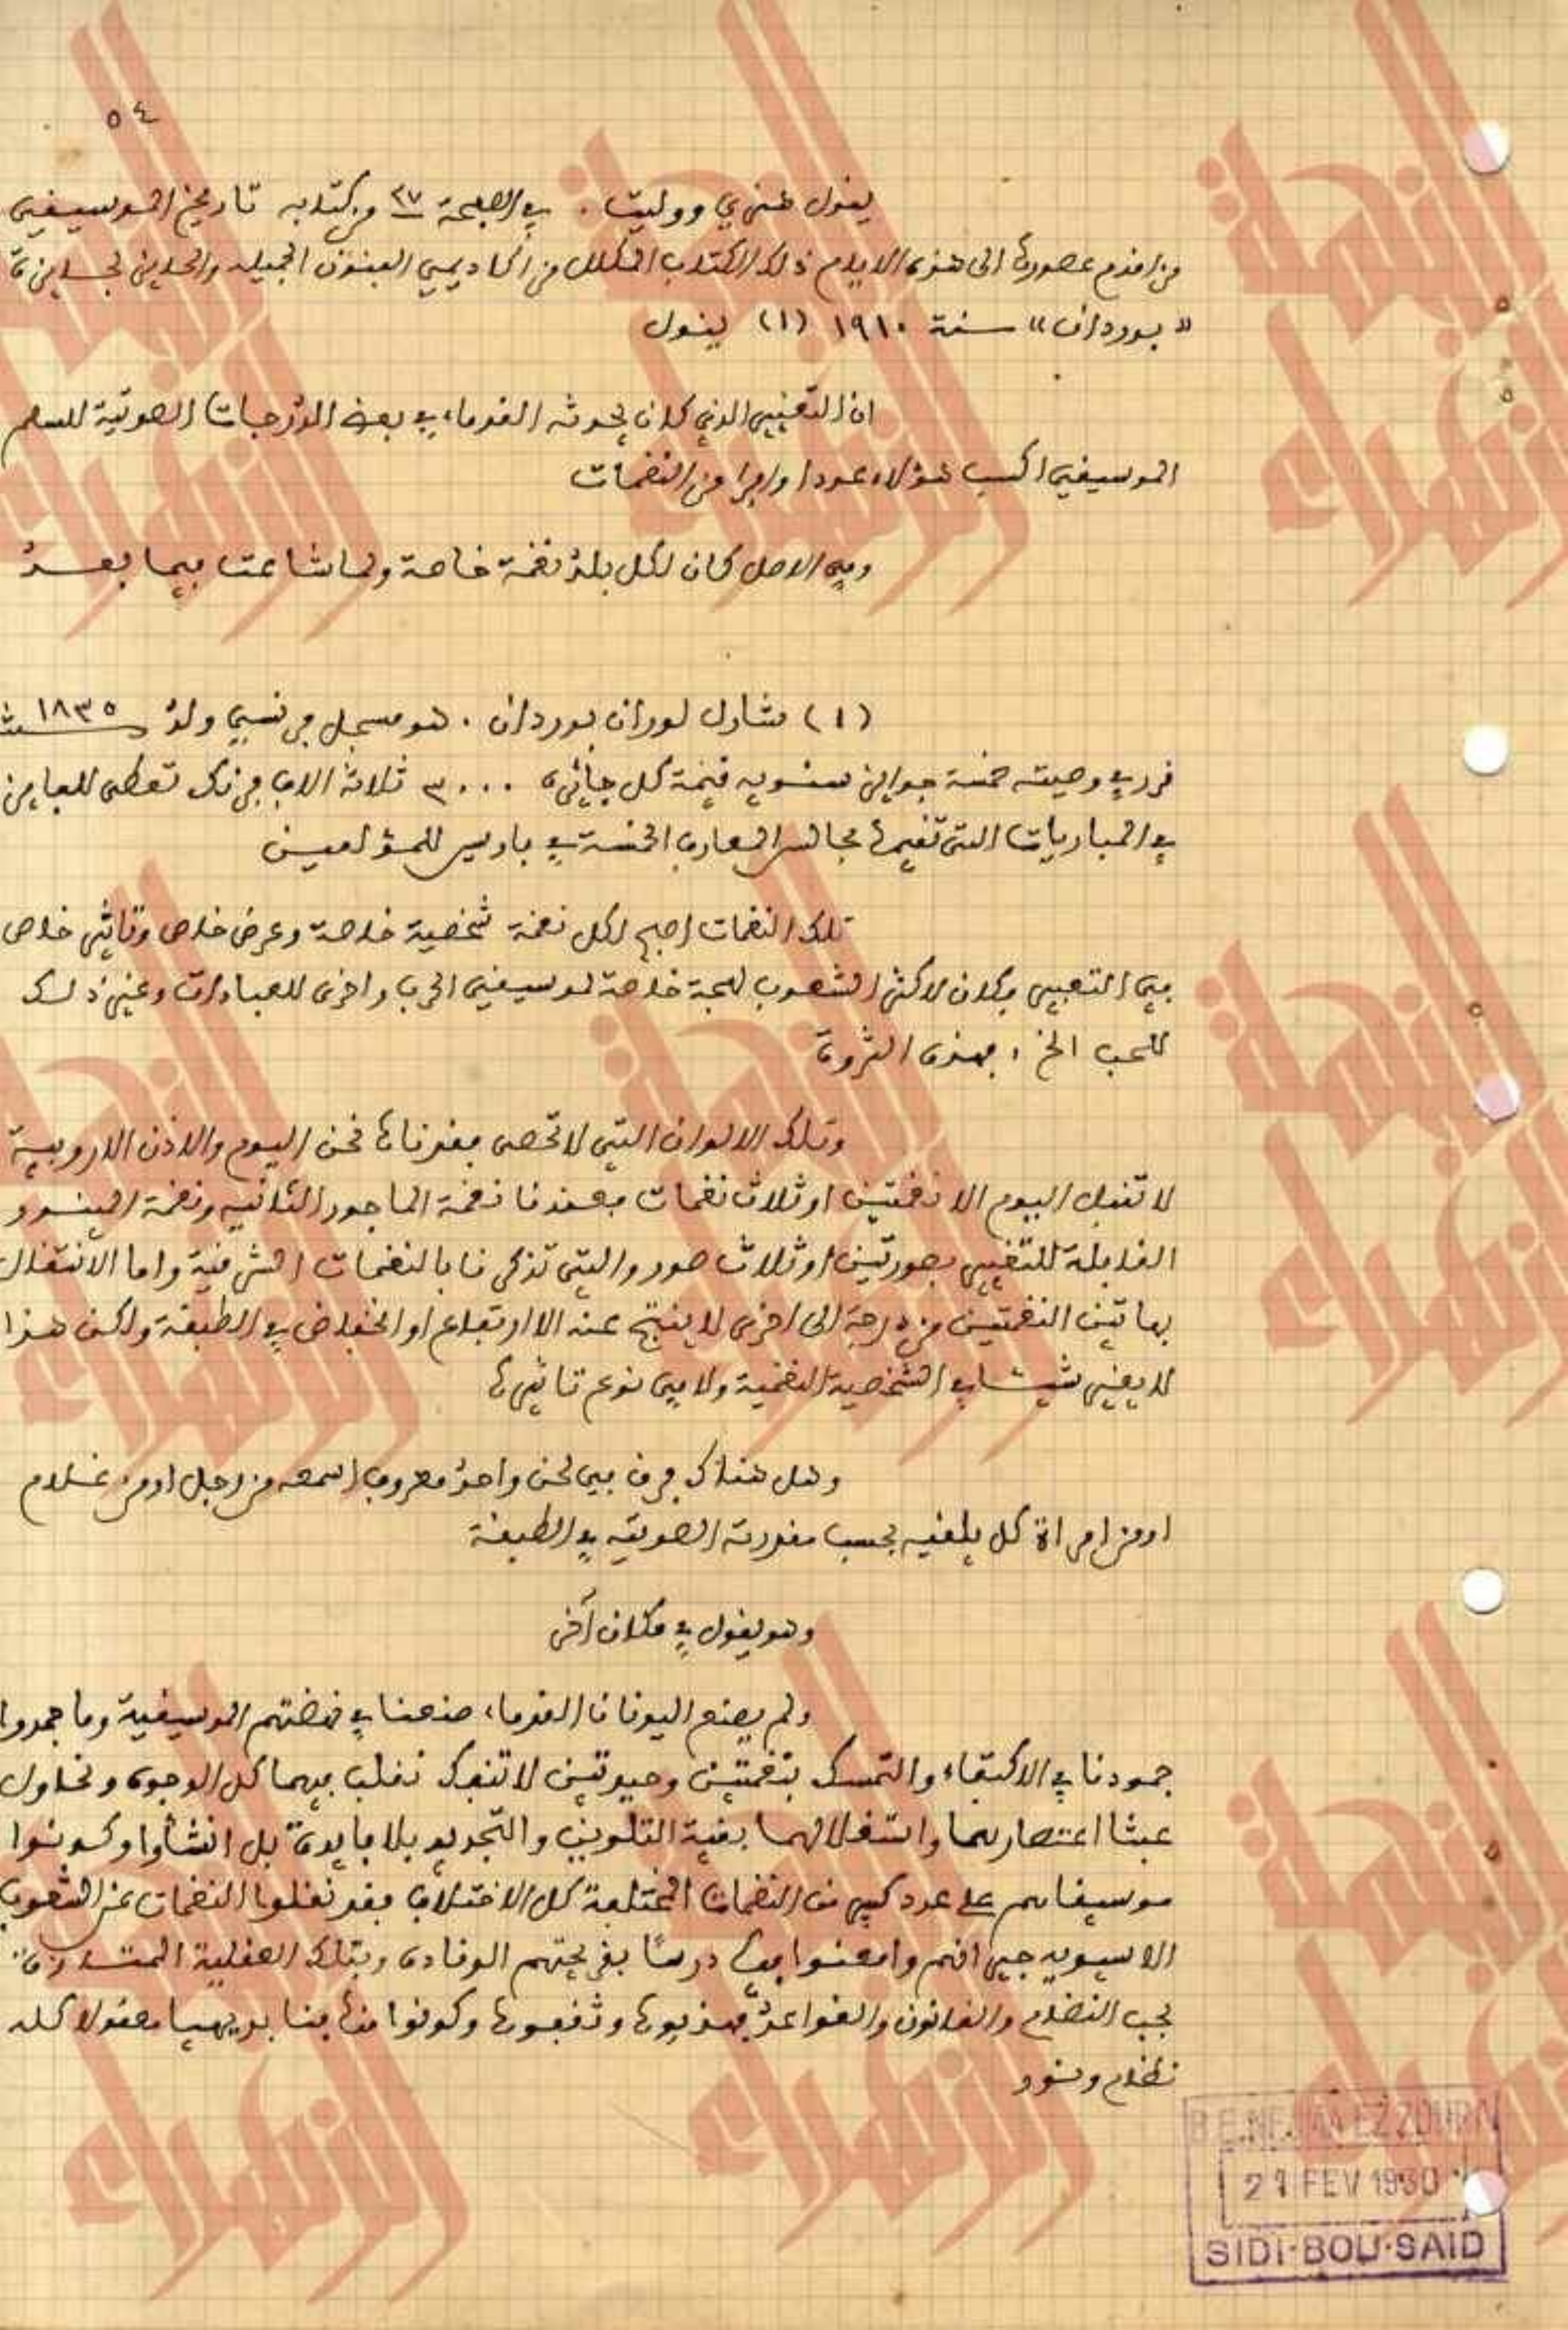 ٥٤
يقول هنري ووليت . في الصفحة ٢٧ من كتابه تاريخ الموسيقى
من اقدم عصورها الى هذه الايام ذلك الكتاب المكلل من اكاديمي الفنون الجميله والحايز لجايزة
« بوردان » سنة ١٩١٠ (١) يقول
ان التغيير الذي كان يحدثه القدماء في بعض الدرجات الصوتية للسلم
الموسيقي اكسب هؤلاء عددا وافرا من النغمات
وفي الاصل كان لكل بلد نغمة خاصة ولما شاعت فيما بعد
(١) شارل لوران بوردان . هو مسجل فرنسي ولد سنة ١٨٣٥
قرر في وصيته خمسة جوايز سنويه قيمة كل جائزة ٣٠٠٠ ثلاثة الاف فرنك تعطى للفايزين
في المباريات التي تقيمها مجالس المعارف الخمسة في باريس للمؤلفين
تلك النغمات اصبح لكل نغمة شخصية خاصة وعرض خاص وتاثير خاص
في التعبير وكان لاكثر الشعوب لهجة خاصة لموسيقى الحرب واخرى للعبادات وغير ذلك
للحب الخ ، فهذه الثروة
وتلك الالوان التي لا تحصى فقدناها نحن اليوم والاذن الاروبية
لا تقبل اليوم الا نغمتين او ثلاث نغمات فعندنا نغمة الماجور الثانيه ونغمة المينور
القابلة للتغيير بصورتين او ثلاث صور والتي تذكرنا بالنغمات الشرقية واما الانتقال
بهاتين النغمتين من درجة الى اخرى لا ينتج عنه الا ارتفاع او انخفاض في الطبقة ولكن هذا
لا يغير شيئا في الشخصية النغمية ولا في نوع تاثيرها
وهل هناك فرق بين لحن واحد معروف اسمعه من رجل او من غلام
او من امراة كل يلقيه بحسب مقدرته الصوتيه في الطبقة
وهو يقول في مكان آخر
ولم يصنع اليونان القدماء صنعنا في نهضتهم الموسيقية وما جمدوا
جمودنا في الاكتفاء والتمسك بنغمتين وحيدتين لا تنفك نقلب فيهما كل الوجوه ونحاول
عبثا اعتصارهما واستغلالهما بغية التلوين والتجديد بلا فايدة بل انشأوا وكونوا
موسيقاهم على عدد كبير من النغمات المختلفة كل الاختلاف فقد نقلوا النغمات عن الشعوب
الاسيويه جيرانهم وامعنوا فيها درسًا بقريحتهم الوقادة وبتلك العقلية الممتازة
بحب النظام والقانون والقواعد فهذبوها وثقفوها وكونوا منها فنا بديهيا معقولا كله
نظام ونور
B.E. NEJMA EZZOHRA
21 FEV 1930
SIDI-BOU-SAID
النجمة الزهراء